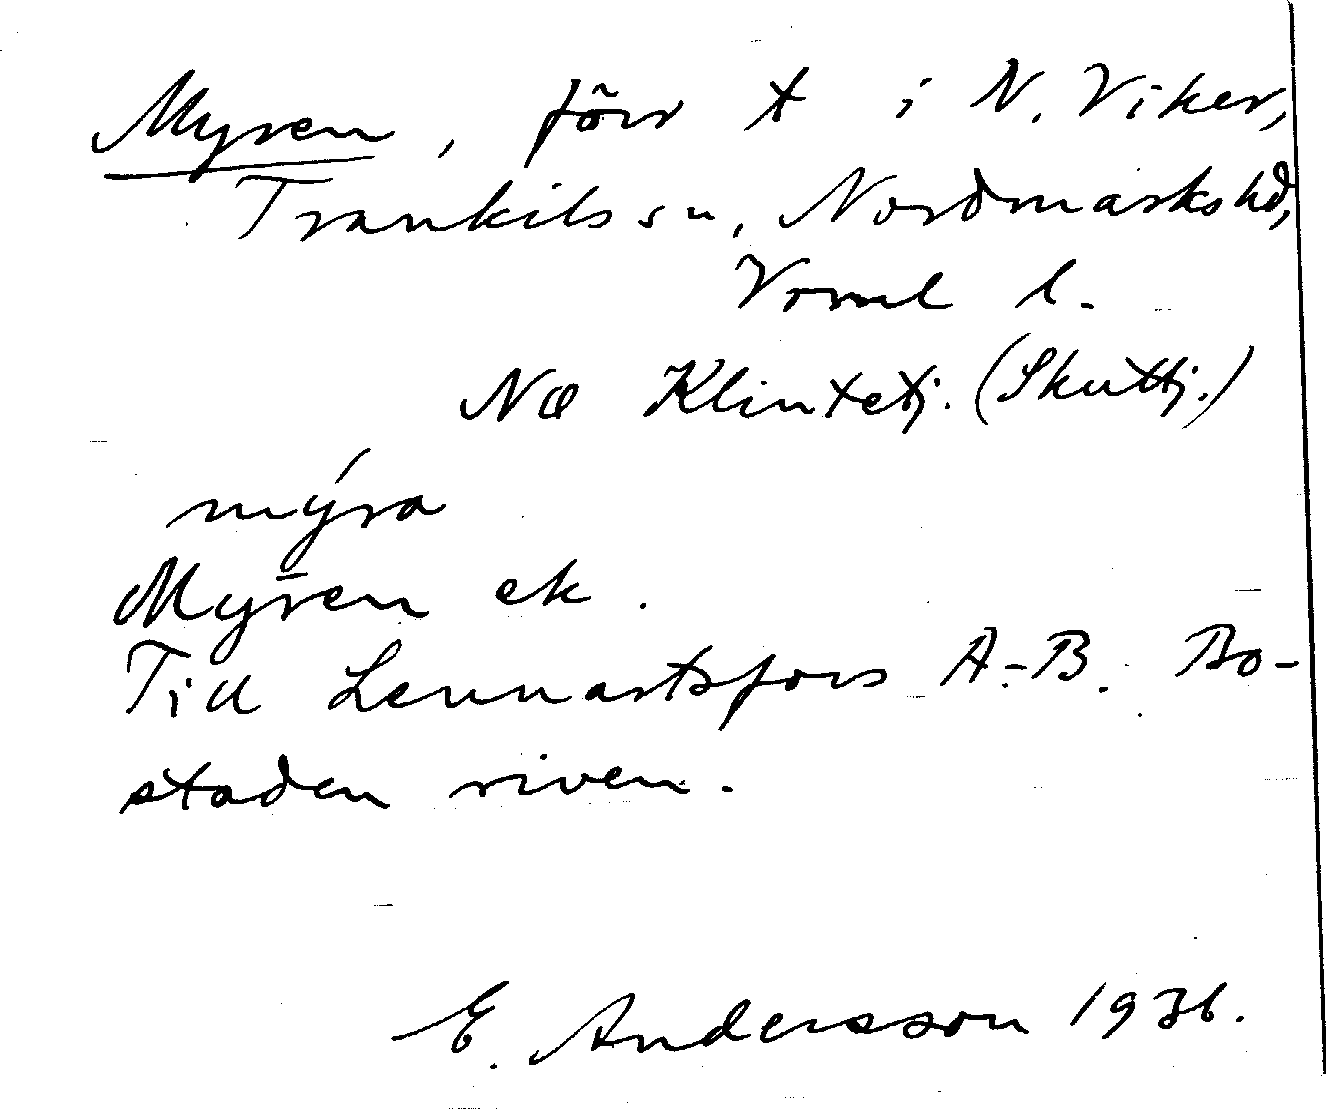 Myren, förr t i N. Viker,
Trankils sn, Nordmarks hd,
Vrml l.
NO Klintetj. (Skuttj.)
mýra
Myren ek.
Till Lennartsfors A.-B. Bo-
staden riven.
E. Andersson 1936.